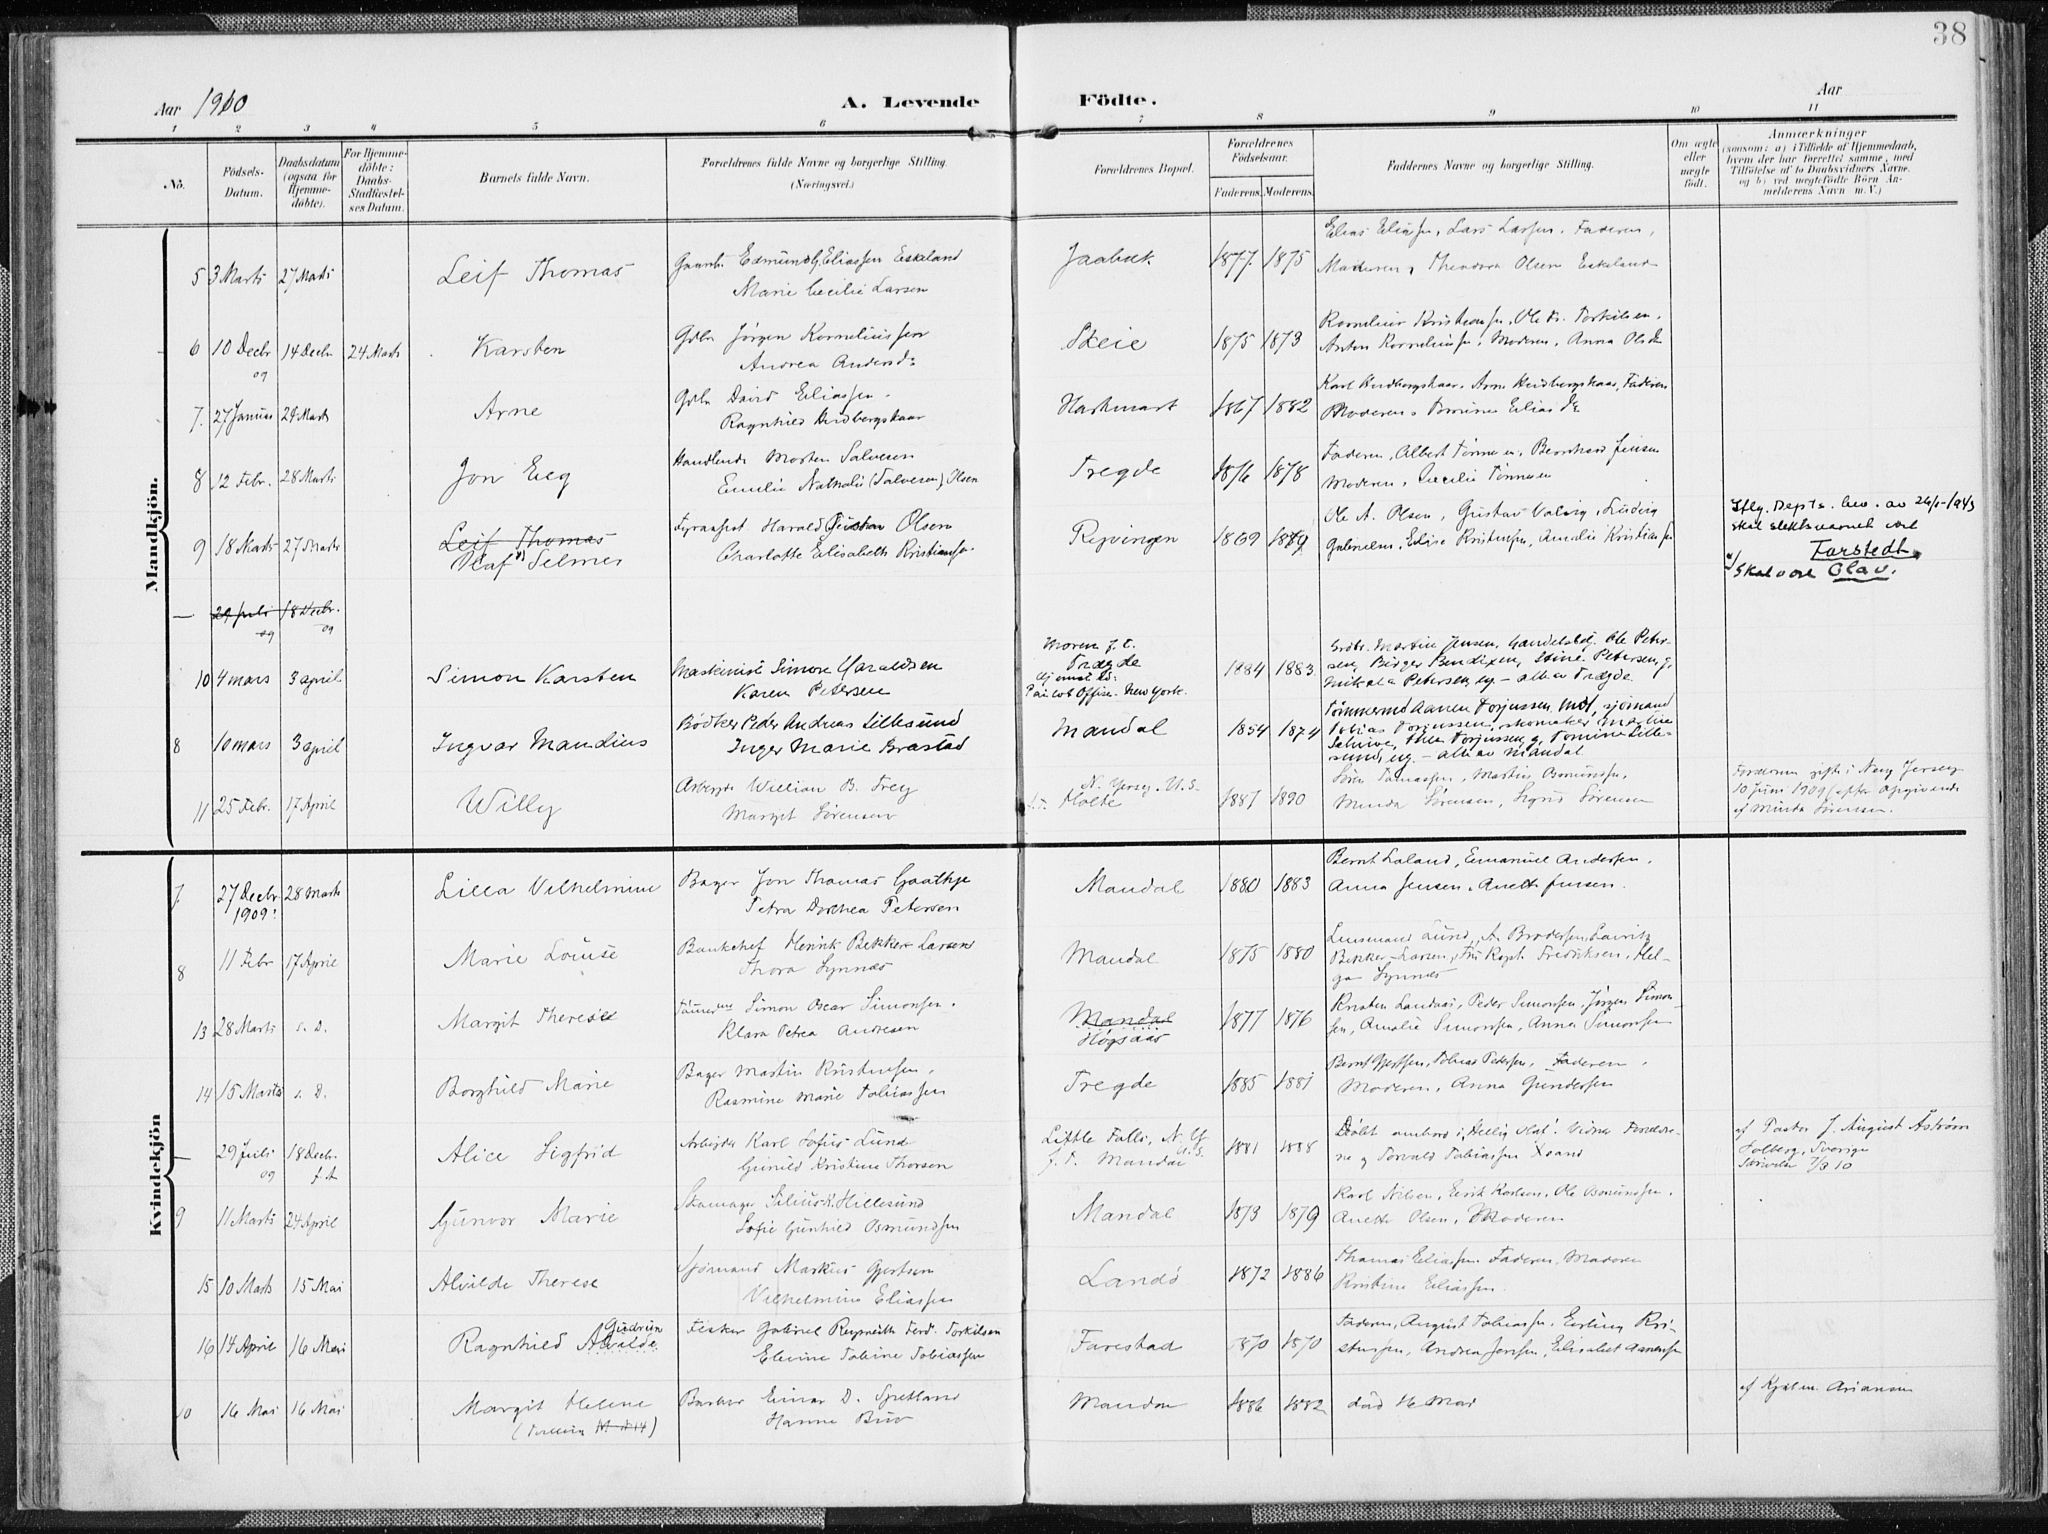 38
Aar 1910
A. Levende
Födte.
Aar
1 2 3 4 5 6 7 8 9 10 11
No.
Födsels-Datum.
Daabsdatum (ogsaa for Hjemme-döbte).
For Hjemme-döbte: Daabs-Stadfæstel-ses Datum.
Barnets fulde Navn.
Forældrenes fulde Navne og borgerlige Stilling. (Næringsvei.)
Forældrenes Bopæl.
Forældrenes Födselsaar.
Faderens. Moderens.
Faddernes Navne og borgerlige Stilling.
Om ægte eller uægte födt.
Anmærkninger
(saasom: a) i Tilfælde af Hjemmedaab, hvem der har forrettet samme, med Tilföielse af to Daabsvidners Navne, og b) ved uægtefödte Börn An-melderens Navn m. V.)
Mandkjön.
5 3 Marts 27 Marts Leif Thomas
Edmund G. Eliassen Eskeland
Marie Cecilie Larsen
1877 1875
Elias Eliassen, Lars Larsen, Faderen,
Moderen, Theodora Olsen Eskeland
6 10 Decbr 14 Decbr 24 Marts Karsten
og
Gdbr Jørgen Korneliussen
Andrea Andersdr
Skeie
1875 1873
Kornelius Kristiansen, Ole Kr. Torkilsen,
Anton Korneliussen, Moderen, Anna Olsdr
7. 27 Januar 24 Marts Arne
Gdbr David Eliassen
Ragnhild
Hartmark
1867 1882
Faderen
Moderen, Tomine Eliasdr
8 12 Febr. 28 Marts Jon Eeg
Handlende Morten Salvesen
Emilie Nathalie (Salvesen) Olsen
Tregde
1876 1878
Faderen, Albert Tønnesen, Bernhard Jensen
Moderen, Cecilie Tønnesen
9 18 Marts 27 Marts Leif Thomas
Olaf Selmer
Harald Gustav Olsen
Charlotte Elisabeth Kristiansen
Ryvingen
1869 1879
Ole A. Olsen, Gustav Ludvig
Gabrielsen, Elise Kristensen, Amalie Kristiansen
Depts. bev. av 26/1-1943
skal slektsnavnet være
Farstedt
x/ Skal være Olav.
— 29 Juli 18 Decbr.
og og
10 4 mars 3 april Simon Karsten
Maskinist Simon Haraldsen
Karen Petersen
Moren f.t.
Tragde
Hjemsted:
New York.
1884 1883
Martin Jensen, Ole Peter-
sen, Birger Bendixen, Stine Petersen, g.
Mikala Petersen, ug. — alle av Tragde
8 10 mars 3 april Ingvar Mandius
Bødker Peder Andreas Lillesund
Inger Marie Brastad
Mandal
1854 1874
Tømmermd Aanen Torjussen, Mdl, sjömand
Tobias Torjussen, skomaker Martin
Thea Torjussen, g, Tomine Lille-
sund, ug. — alle av Mandal
11 25 Febr. 17 April Willy
William B. Frey
Margit Sørensen
N. Yersey. U.S.
f.t. Holte
1887 1890
Søren Tomassen, Martin Osmundsen,
Minda Sørensen, Sigrid Sørensen
Forældrene gifte i New Jersey
10 Juni 1909 (efter Opgivende
af Minda Sørensen.
Kvindekjön
7. 27 Decbr 1909. 28 Marts Lilla Vilhelmine
Bager Jon Thomas Gaathje
Petra Dorthea Petersen
Mandal
1880 1883
Bernt Loland, Emanuel Andersen,
Anna Jensen, Anette Jensen.
8 11 Febr 17 April Marie Louise
Bankchef Henrik Bekker Larsen
Thora Synnes
Mandal
1875 1880
Lensmand Lund, A. Brodersen, Lauritz
Bekker-Larsen, Frk Kapt. Fredriksen, Hel-
ga Synnes
13 28 Marts s. D. Margit Therese
Simon Oscar Simonsen.
Klara Petra Andresen
Mandal
Høgsaas
1877 1876
Kristen Peder Simonsen, Jørgen Simon-
sen, Amalie Simonsen, Anna Simonsen
14 15 Marts s. D. Borghild Marie
Bager Martin Kristensen,
Rasmine Marie Tobiassen
Tregde
1885 1881
Bernt Gjertsen, Tobias Pedersen, Faderen,
Moderen, Anna Gundersen
— 29 Juli 18 Decbr Alice Sigfrid
og f.A
Arbeider Karl Sofus Lund
Gunild Kristine Thorsen
Little Falls, N.Y. U.S.
f.t. Mandal
1881 1888
Døbt ombord i "Hellig Olaf". Vidner Forældre-
ne og Torvald Tobiassen Xsand
af Pastor J. August Åström
Solberg, Sverige
7/3 10
9 11 Marts 24 April Gunvor Marie
Skomager Silius K. Hillesund
Sofie Gunhild Osmundsen
Mandal
1873 1879
Karl Nilsen, Eirik Karlsen, Ole Osmundsen,
Anette Olsen, Moderen
15 10 Marts 15 Mai Alvilde Therese
Sjømand Markus Gjertsen
Vilhelmine Eliassen
Landö
1872 1886
Thomas Eliassen, Faderen, Moderen
Kristine Eliassen.
16 14 April 16 Mai Ragnhild Alvilde
Gudrun
Fisker Gabriel Reynert Ferd. Torkilsen
Elevine Tobine Tobiassen
Farestad
1870 1870
Faderen, August Tobiassen, Erling Kri-
stensen, Andrea Jensen, Elisabet Aanensen
10 16 Mai 16 Mai Margit Helene
(Tvilling)
Barber Einar D. Spetland
Hanne Buv
Mandal
1886 1882
død 16 Mai
af Hjalm. Ariansen